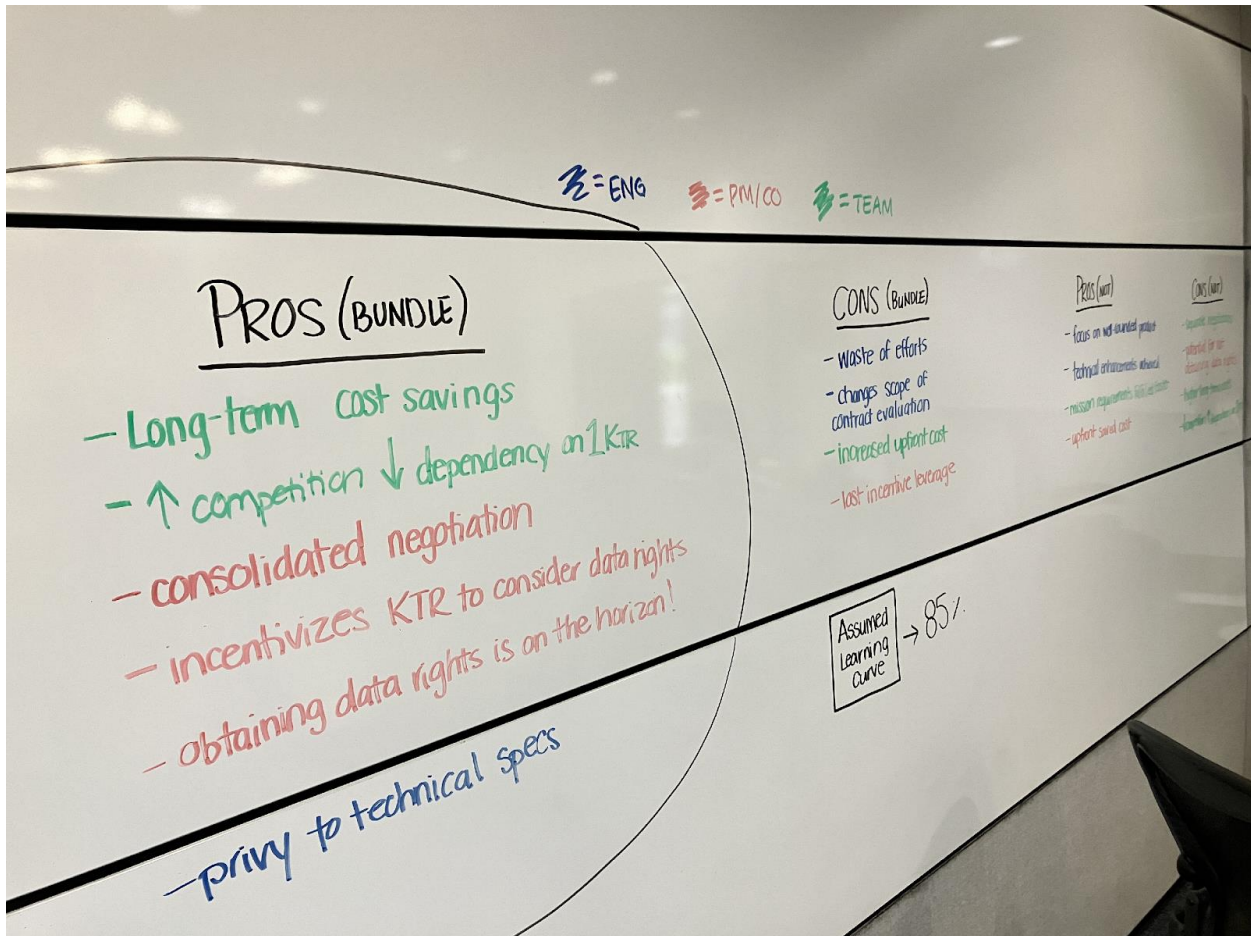 = ENG = PM/CO = TEAM
PROS (BUNDLE)
- Long-term cost savings
- ↑ competition ↓ dependency on 1 KTR
- consolidated negotiation
- incentivizes KTR to consider data rights
- obtaining data rights is on the horizon!
- privy to technical specs
CONS (BUNDLE)
- waste of efforts
- changes scope of
contract evaluation
- increased upfront cost
- lost incentive leverage
Assumed
Learning
Curve
→ 85%
PROS (NOT)
- focus on well-rounded product
- technical enhancements achieved
- mission requirements fulfilled
- upfront saved cost
CONS (NOT)
- potential for not
obtaining data rights